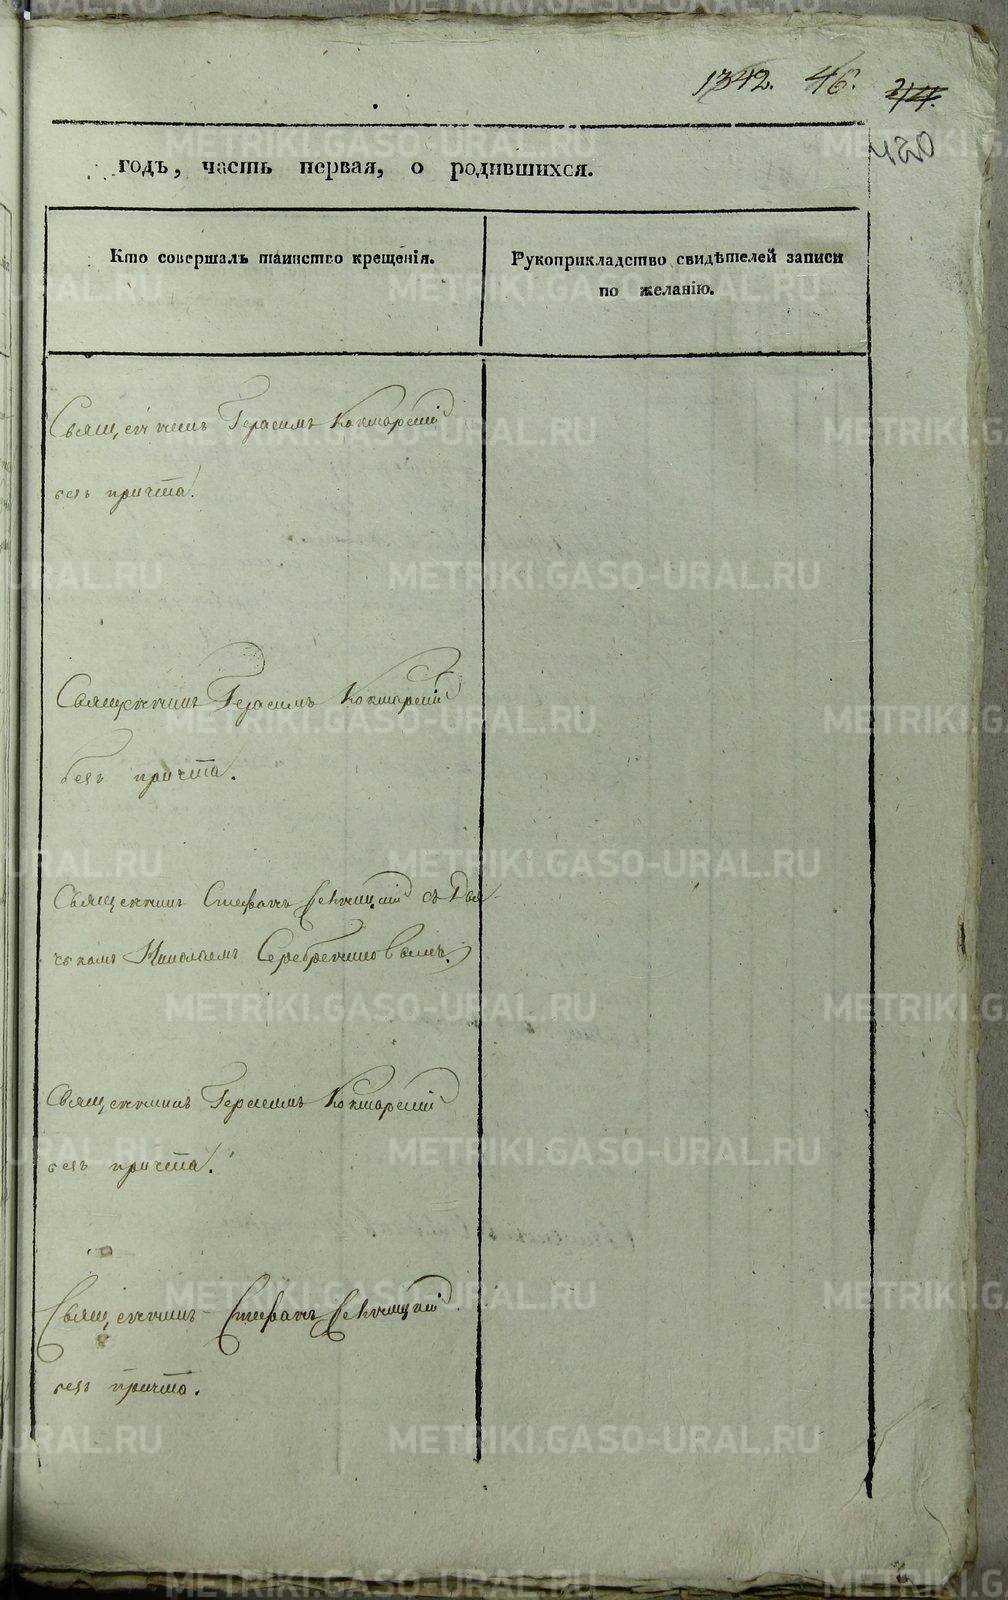 1342. 46. 44.
450
годъ, часть первая, о родившихся.
Кто совершалъ таинство крещенія.
Рукоприкладство свидѣтелей записи
по желанію.
Священникъ Герасимъ Коктарскій
безъ причта.
Священникъ Герасимъ Коктарскій
безъ причта.
Священникъ Стефанъ съ Дья-
чкомъ Николаемъ Серебренниковымъ.
Священникъ Герасимъ Коктарскій
безъ причта.
Священникъ Стефанъ
безъ причта.
METRIKI.GASO-URAL.RU